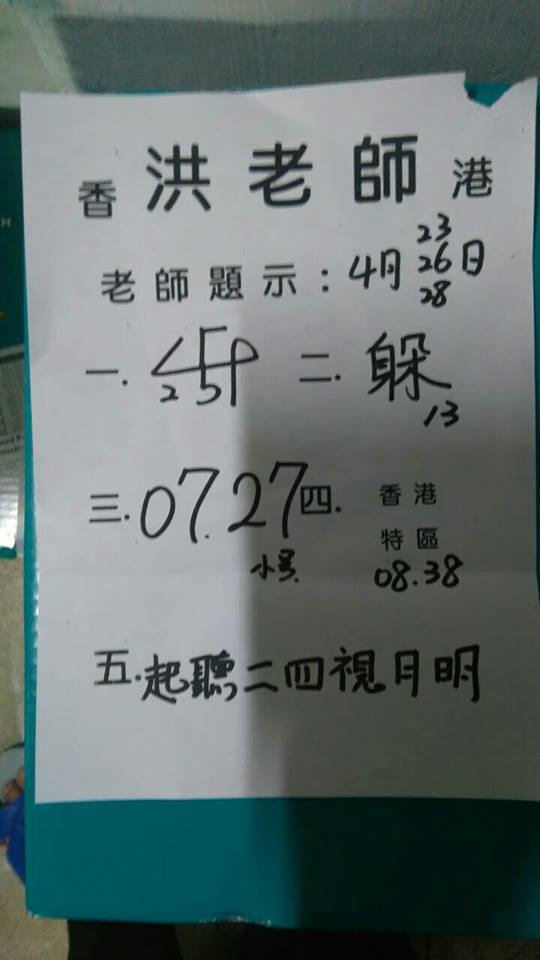 香 洪老師 港
老師題示：4月 23 26 28 日
一. 二. 躲
25 13
三. 07.27 四. 香港
小号. 特區
08.38
五. 起聽二四視月明